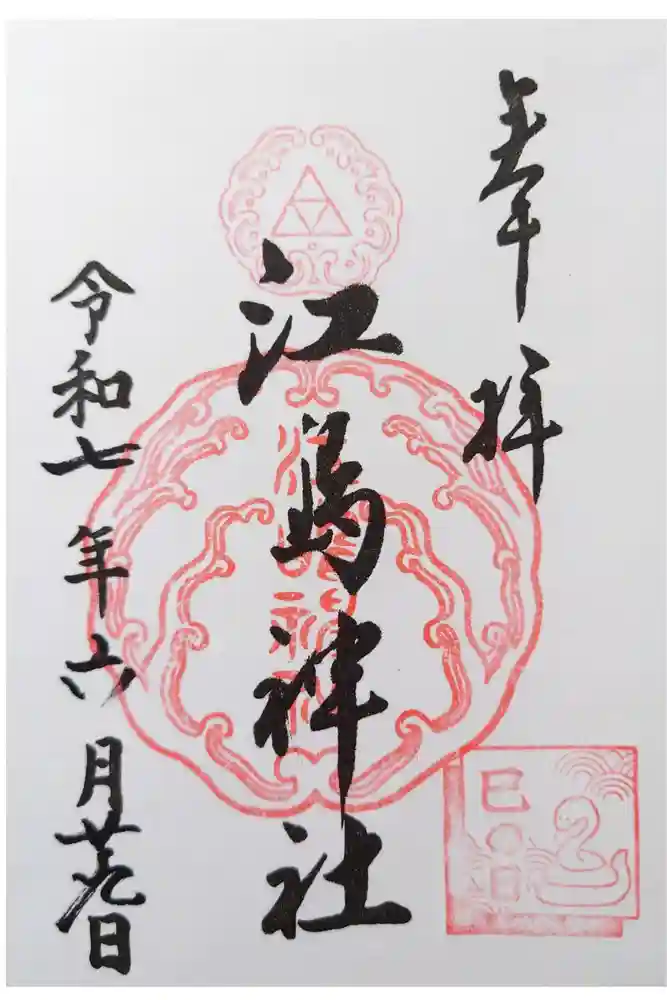 奉拝
江島神社
令和七年六月廿九日
江島神社
巳